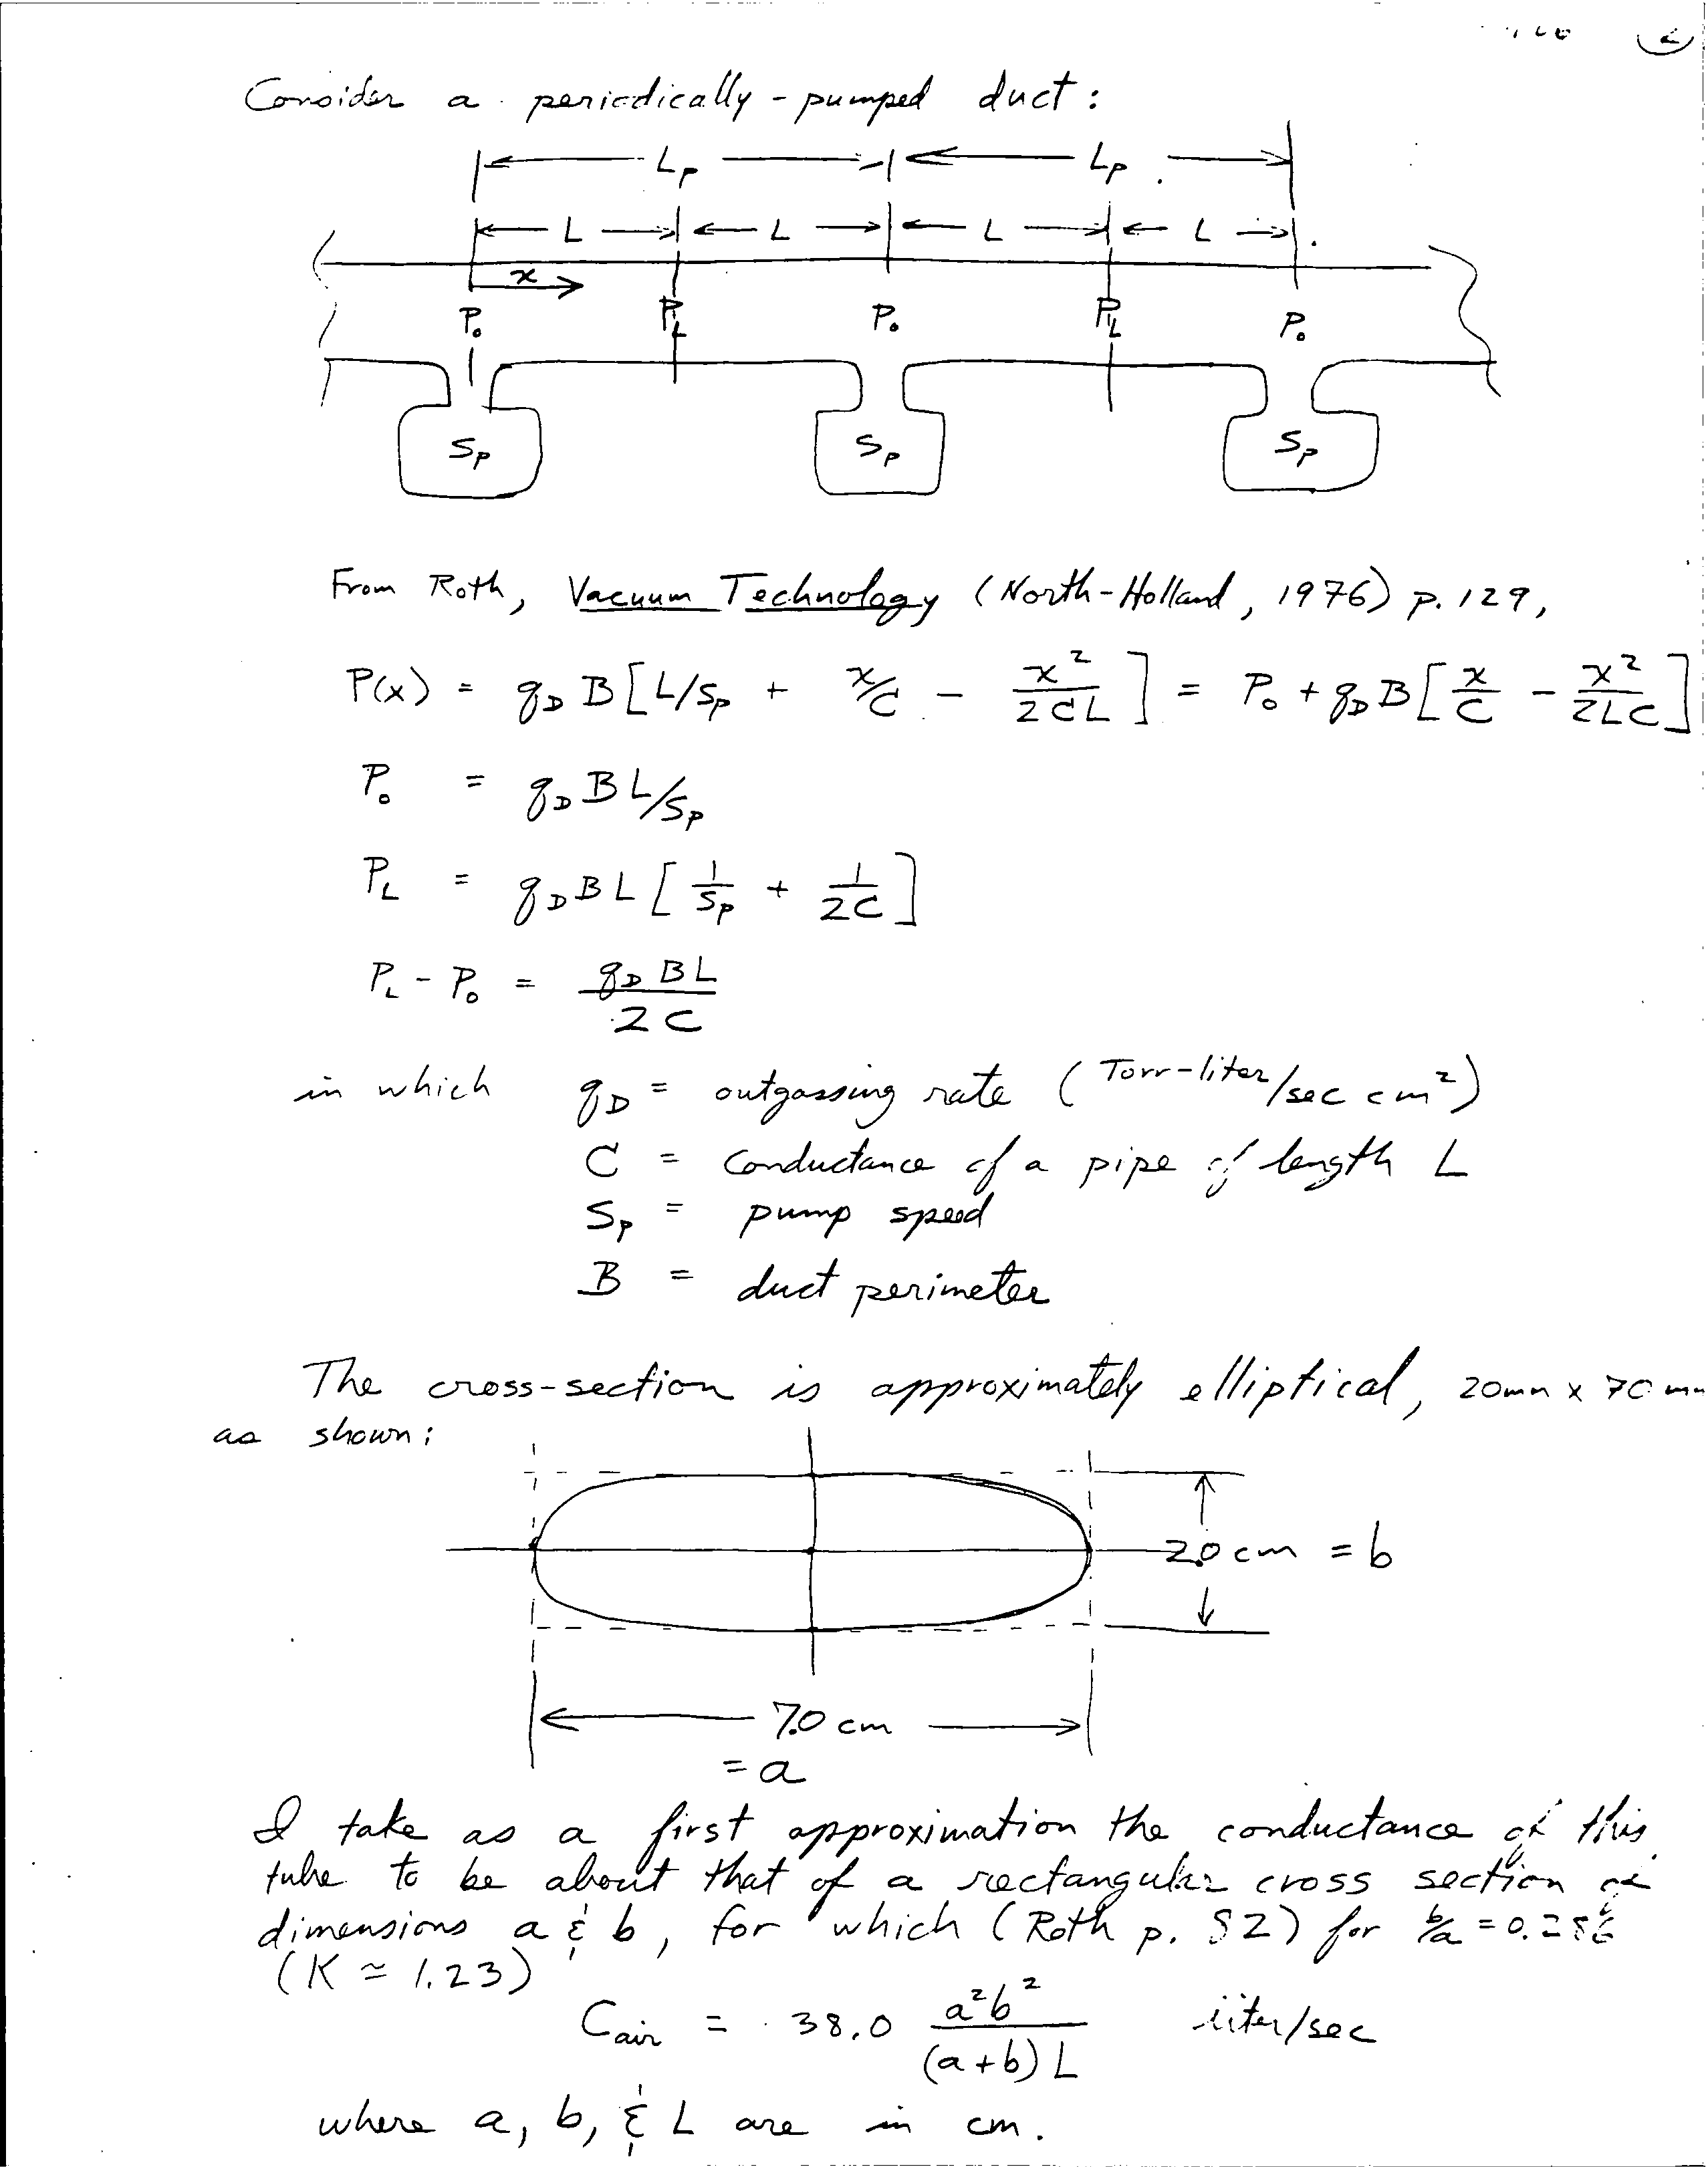 2
Consider a periodically-pumped duct:
Lp Lp
L L L L
x
P₀ P_L P₀ P_L P₀
Sp Sp Sp
From Roth, Vacuum Technology (North-Holland, 1976) p. 129,
P(x) = q_D B [L/Sp + x/C - x²/2CL] = P₀ + q_D B [x/C - x²/2LC]
P₀ = q_D B L/Sp
P_L = q_D B L [1/Sp + 1/2C]
P_L - P₀ = q_D B L / 2C
in which q_D = outgassing rate (Torr-liter/sec cm²)
C = conductance of a pipe of length L
Sp = pump speed
B = duct perimeter
The cross-section is approximately elliptical, 20mm x 70 mm
as shown:
2.0 cm = b
7.0 cm
= a
I take as a first approximation the conductance of this
tube to be about that of a rectangular cross section of
dimensions a & b, for which (Roth p. 82) for b/a = 0.286
(K ≃ 1.23)
C_air = 38.0 a²b²/(a+b)L liter/sec
where a, b, & L are in cm.